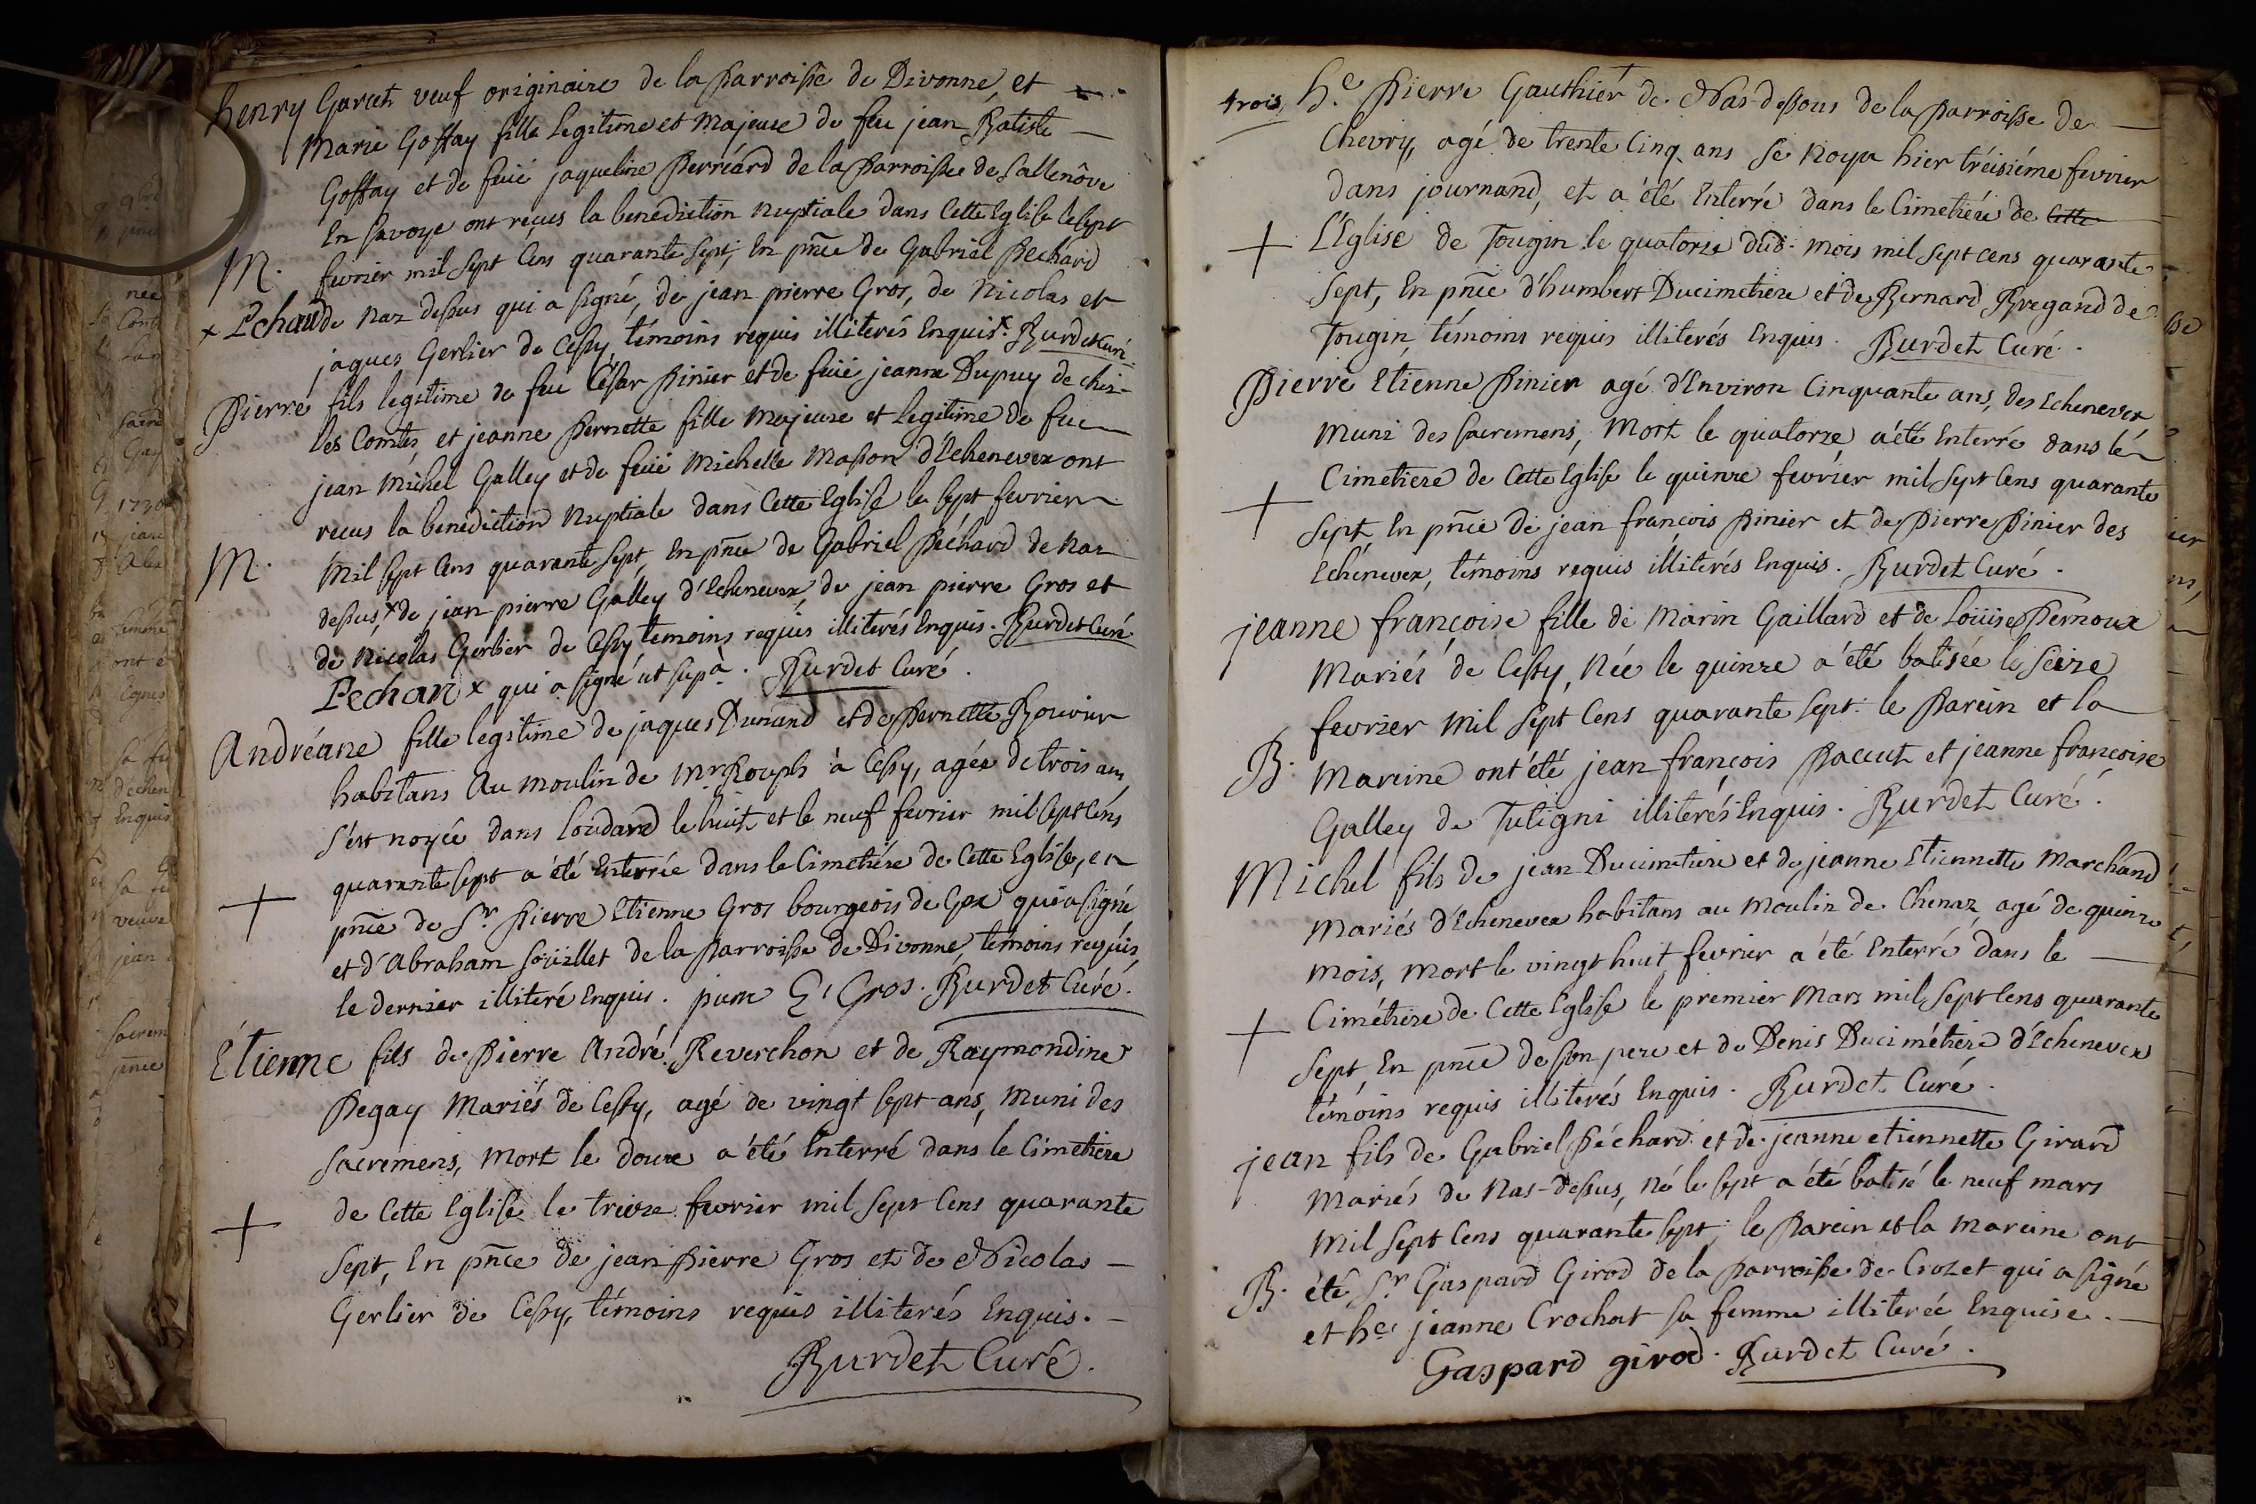 henry Garcet veuf originaire de la Parroisse de Divonne, et
Marie Goffay fille legitime et Majeure de feu jean Batiste
Goffay et de feuë jaqueline Perréard de la Parroisse de Sallenôve
En Savoye ont reçus la benediction nuptiale dans Cette Eglise le sept
M. fevrier mil sept Cens quarante sept, En pnce de Gabriel Pechard
x Pechard de Naz dessus qui a signé, de jean pierre Gros, de Nicolas et
jaques Gerlier de Cessy témoins requis illiterés Enquis x. Burdet Curé.
Pierre fils legitime de feu César Pinier et de feuë jeanne Dupuy de chez-
les Comtes, et jeanne Pernette fille Majeure et legitime de feu
jean Michel Galley et de feuë Michelle Masson d'Echenevex ont
recus la benediction Nuptiale dans Cette Eglise le sept fevrier
M. Mil sept Cens quarante sept, En pnce de Gabriel Péchard de Naz
dessus, x de jean pierre Galley d'Echenevex, de jean pierre Gros et
de Nicolas Gerlier de Cessy temoins requis illiterés Enquis. Burdet Curé
Pechard x qui a signé ut supa. Burdet Curé.
Andréane fille legitime de jaques Durand et de Pernette Bouvier
habitans Au Moulin de Mr Rouph à Cessy, agée de trois ans,
s'est noyée dans Loudard le huit et le neuf fevrier mil sept Cens
quarante sept a été Enterrée dans le Cimetiére de Cette Eglise, en
+ pnce de Sr. Pierre Etienne Gros bourgeois de Gex qui a signé
et d'Abraham Soüillet de la Parroisse de Divonne, témoins requis,
le dernier illiteré Enquis. Et Gros. Burdet Curé.
Étienne fils de Pierre André Reverchon et de Raymondine
Pegay Mariés de Cessy, agé de vingt sept ans, Muni des
Sacremens, Mort le douze a été Enterré dans le Cimetiere
+ de Cette Eglise le treize fevrier mil sept Cens quarante
Sept, En pnce de jean Pierre Gros et de Nicolas
Gerlier de Cessy, témoins requis illiterés Enquis.
Burdet Curé.
trois, he. Pierre Gauthier de Nas-dessous de la Parroisse de
Chevry, agé de trente Cinq ans se noya hier tréisiéme fevrier
dans journand, et a été Enterré dans le Cimetiére de Cette
+ L'Eglise de Tougin le quatorze dud. mois mil sept cens quarante
Sept, En pnce d'humbert Ducimetiere et de Bernard Bregand de
Tougin, témoins requis illiterés Enquis. Burdet Curé.
Pierre Etienne Pinier agé d'Environ Cinquante ans, des Echenevex,
Muni des Sacremens, Mort le quatorze, a été Enterré dans le
Cimetiere de Cette Eglise le quinze fevrier mil sept Cens quarante
+ Sept, En pnce de jean françois Pinier et de Pierre Pinier des
Echénevex, témoins requis illiterés Enquis. Burdet Curé.
jeanne françoise fille de Marin Gaillard et de Loüise Pernoux
Mariés de Cessy, Née le quinze a été batisée le seize
fevrier Mil Sept Cens quarante sept: le Parein et la
B. Mareine ont été jean françois Paccut et jeanne françoise
Galley de Tutigni illiterés Enquis. Burdet Curé.
Michel fils de jean Ducimetiere et de jeanne Etiennette Marchand
Mariés d'Echenevex habitans au Moulin de Chenaz, agé de quinze
Mois, Mort le vingt huit fevrier a été Enterré dans le
+ Cimétiere de Cette Eglise le premier Mars mil sept Cens quarante
Sept, En pnce de son pere et de Denis Ducimétiere d'Echenevex
témoins requis illiterés Enquis. Burdet Curé.
jean fils de Gabriel Péchard et de jeanne etiennette Girard
Mariés de Nas-dessus, né le sept a été batisé le neuf mars
Mil Sept Cens quarante sept; le Parein et la Mareine ont
B. été Sr Gaspard Girod de la Parroisse de Crozet qui a signé
et he. jeanne Crochat sa femme illiterée Enquise.
Gaspard girod. Burdet Curé.